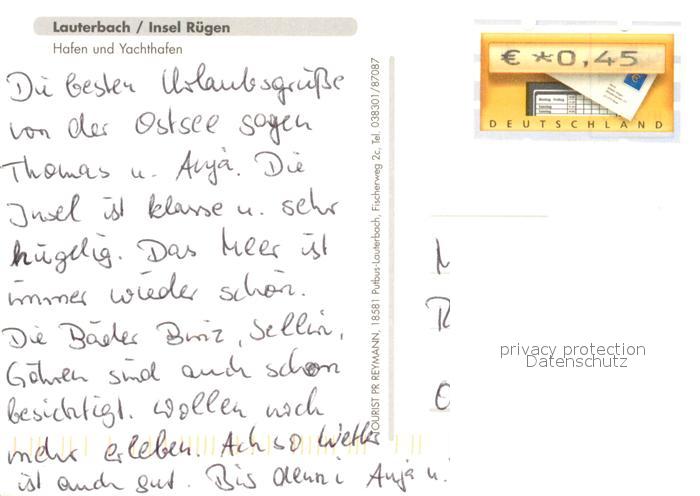 Lauterbach / Insel Rügen
Hafen und Yachthafen
Die besten Urlaubsgrüße
von der Ostsee sagen
Thomas u. Anja. Die
Insel ist klasse u. sehr
hügelig. Das Meer ist
immer wieder schön.
Die Bäder Binz, Sellin,
Göhren sind auch schon
besichtigt. Wollen noch
mehr erleben. Ach so Wetter
ist auch gut. Bis denni Anja u.
TOURIST PR REYMANN, 18581 Putbus-Lauterbach, Fischerweg 2c, Tel. 038301/87087
€ *0,45
DEUTSCHLAND
privacy protection
Datenschutz